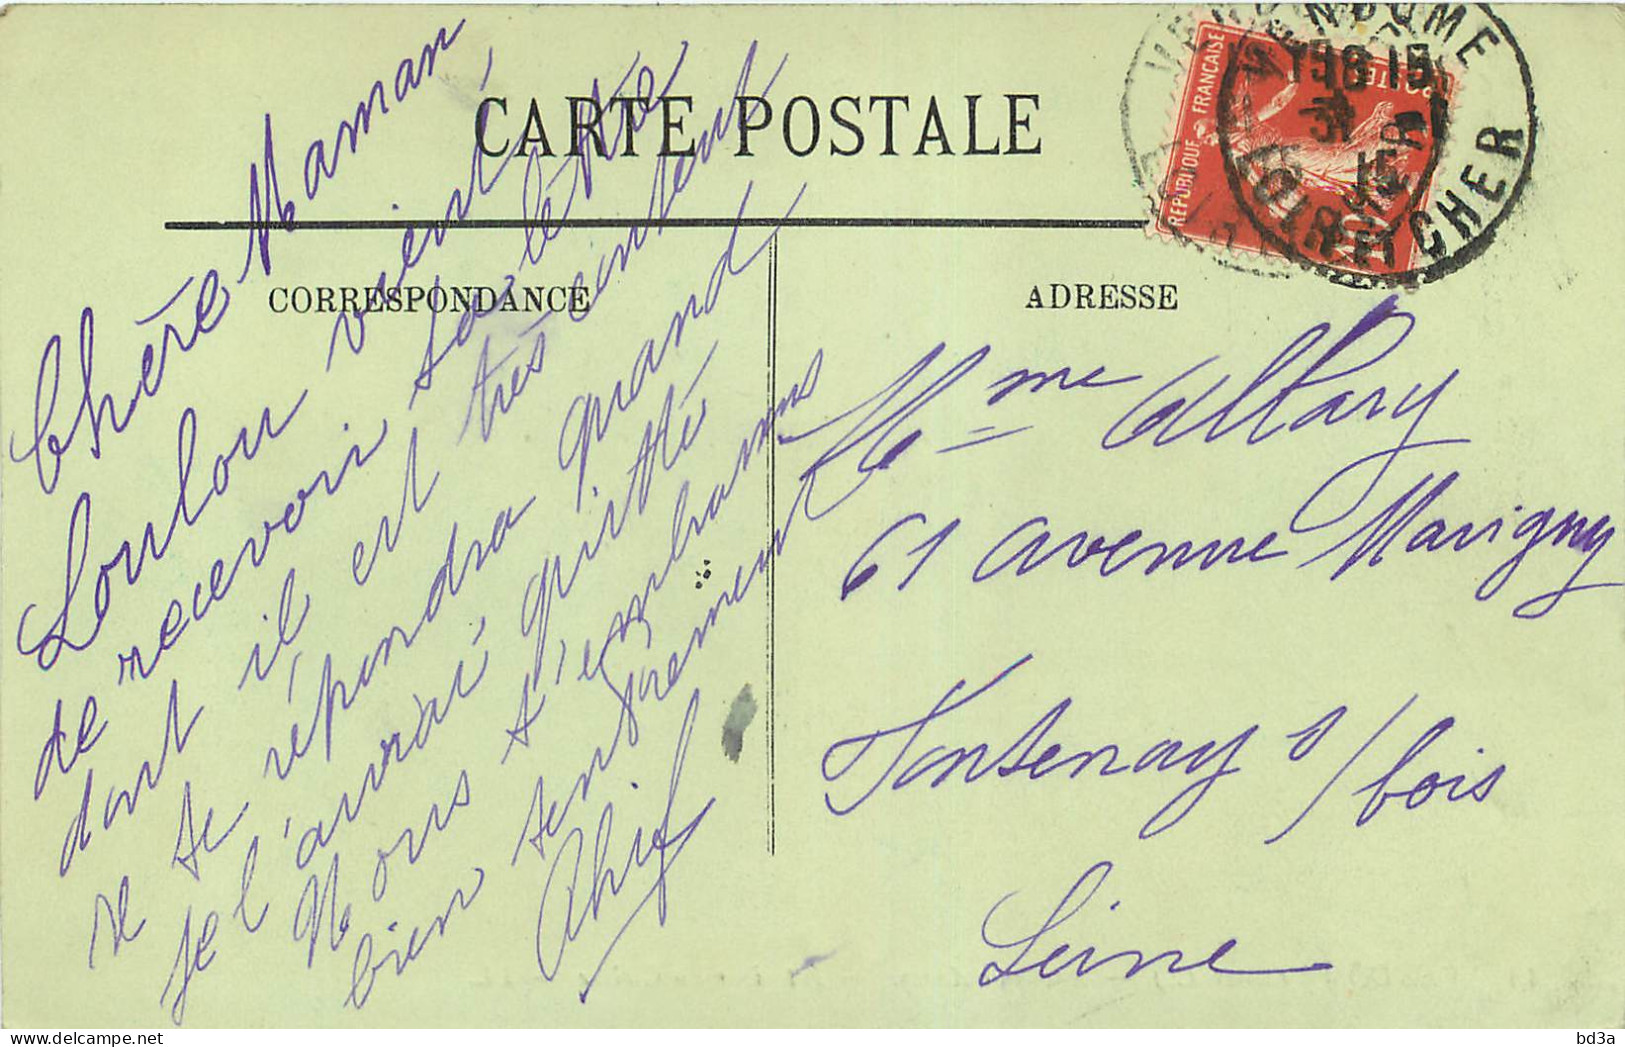 CARTE POSTALE
CORRESPONDANCE
ADRESSE
Chère Maman,
Loulou vient
de recevoir ta lettre
dont il est très content
il te répondra quand
je l'aurai quitté
Nous t'embrassons
bien tendrement
Mme Allary
61 avenue Marigny
Fontenay s/bois
Seine
REPUBLIQUE FRANÇAISE
POSTES
10
VENDOME
15 15
31
15
LOIR ET CHER
bd3a